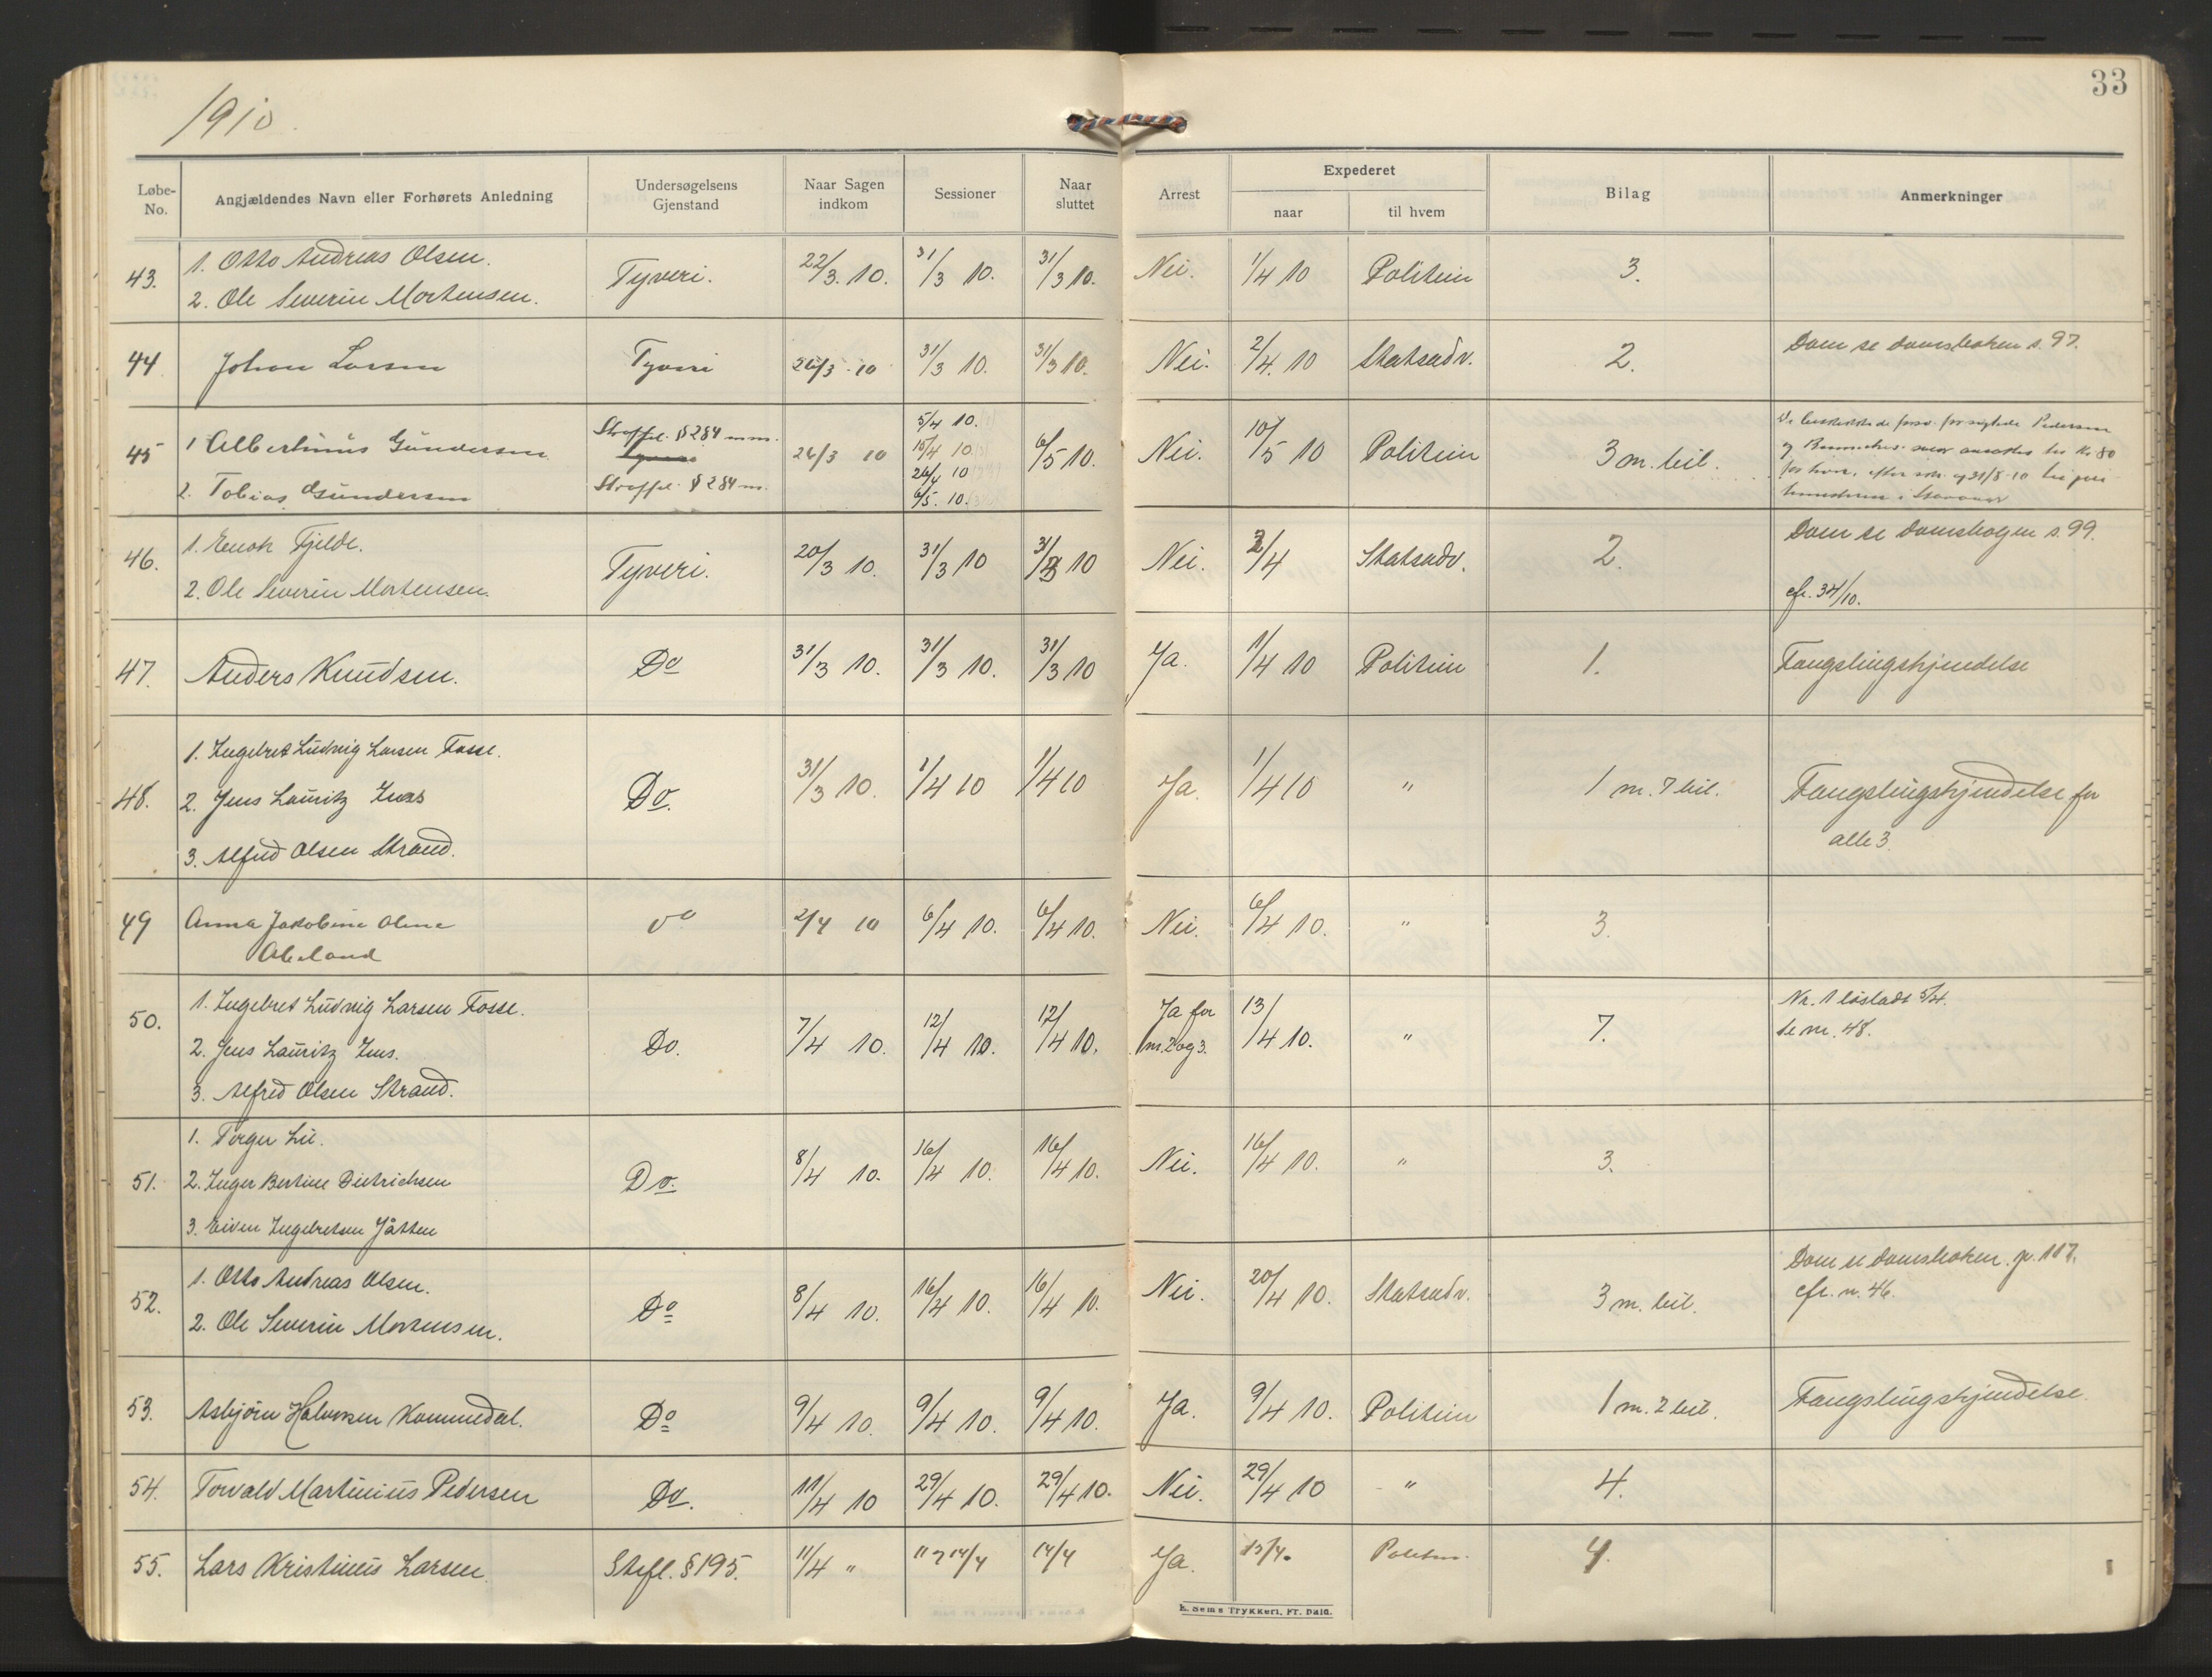 1910.
33
Løbe-No. Angjældendes Navn eller Forhørets Anledning Undersøgelsens Gjenstand Naar Sagen indkom Sessioner Naar sluttet Arrest Expederet naar til hvem Bilag Anmerkninger
43. 1. Otto Andreas Olsen. Tyveri. 22/3. 10. 31/3 10. 31/3 10. Nei. 1/4 10 Politiin 3.
2. Ole Severin Mortensen.
44 Johan Larsen Tyveri 26/3 10 31/3 10. 31/3 10. Nei. 2/4. 10 Statsadv. 2. Dom se domsboken s. 97.
45 1 Albertinius Gundersen Straffel. § 284 m.m. 26/3 10 5/4 10. 6/5 10. Nei. 10/5 10 Politiin 3 m. bil.
15/4 10
2. Tobias Gundersen Straffel. § 284 m. 26/4 10
6/5. 10.
46. 1. Enok Fjelde. Tyveri. 20/3 10. 31/3 10 31/3 10 Nei. 2/4 Statsadv. 2. Dom se domsbogen s. 99.
2. Ole Severin Mortensen. cfr. 34/10.
47. Anders Knudsen. Do 31/3 10. 31/3 10. 31/3 10 Ja. 1/4 10 Politiin 1. Fængslingskjendelse
48. 1. Ingebret Ludvig Larsen Fosse. Do. 31/3 10. 1/4 10 1/4 10 Ja. 1/4 10 " 1 m. 7 bil. Fængslingskjendelse for
2. Jens Lauritz Jens alle 3.
3. Alfred Olsen Strand.
49 Anna Jakobine Oline do 2/4 10 6/4 10. 6/4 10. Nei. 6/4 10. " 3.
Abeland
50. 1. Ingebret Ludvig Larsen Fosse. Do. 7/4 10. 12/4 10. 12/4 10. Ja for nr. 2 og 3. 13/4 10. " 7. Nr. 1 løsladt 5/4.
2. Jens Lauritz Jens. se nr. 48.
3. Alfred Olsen Strand.
51. 1. Torger Lie. Do. 8/4 10. 16/4 10. 16/4 10. Nei. 16/4 10. " 3.
2. Inger Bertine Dietrichsen
3. Eiven Ingebretsen Jåtten
52. 1. Otto Andreas Olsen. Do 8/4 10. 16/4 10. 16/4 10. Nei. 20/4 10. Statsadv. 3 m. bil. Dom se domsboken. p. 117.
2. Ole Severin Mortensen. cfr. n. 46.
53. Asbjørn Halvorsen Kommedal. Do 9/4 10. 9/4 10. 9/4 10. Ja. 9/4 10. Politiin 1 m. 2 bil. Fængslingskjendelse.
54. Torvald Martinius Pedersen Do. 11/4 10 29/4 10. 29/4 10. Nei. 29/4 10 " 4.
55. Lars Kristinius Larsen. Strfl. § 195. 11/4 " 11 & 14/4 14/4 Ja. 15/4. Politiin. 4.
E. Sems Trykkeri, Fr.hald.